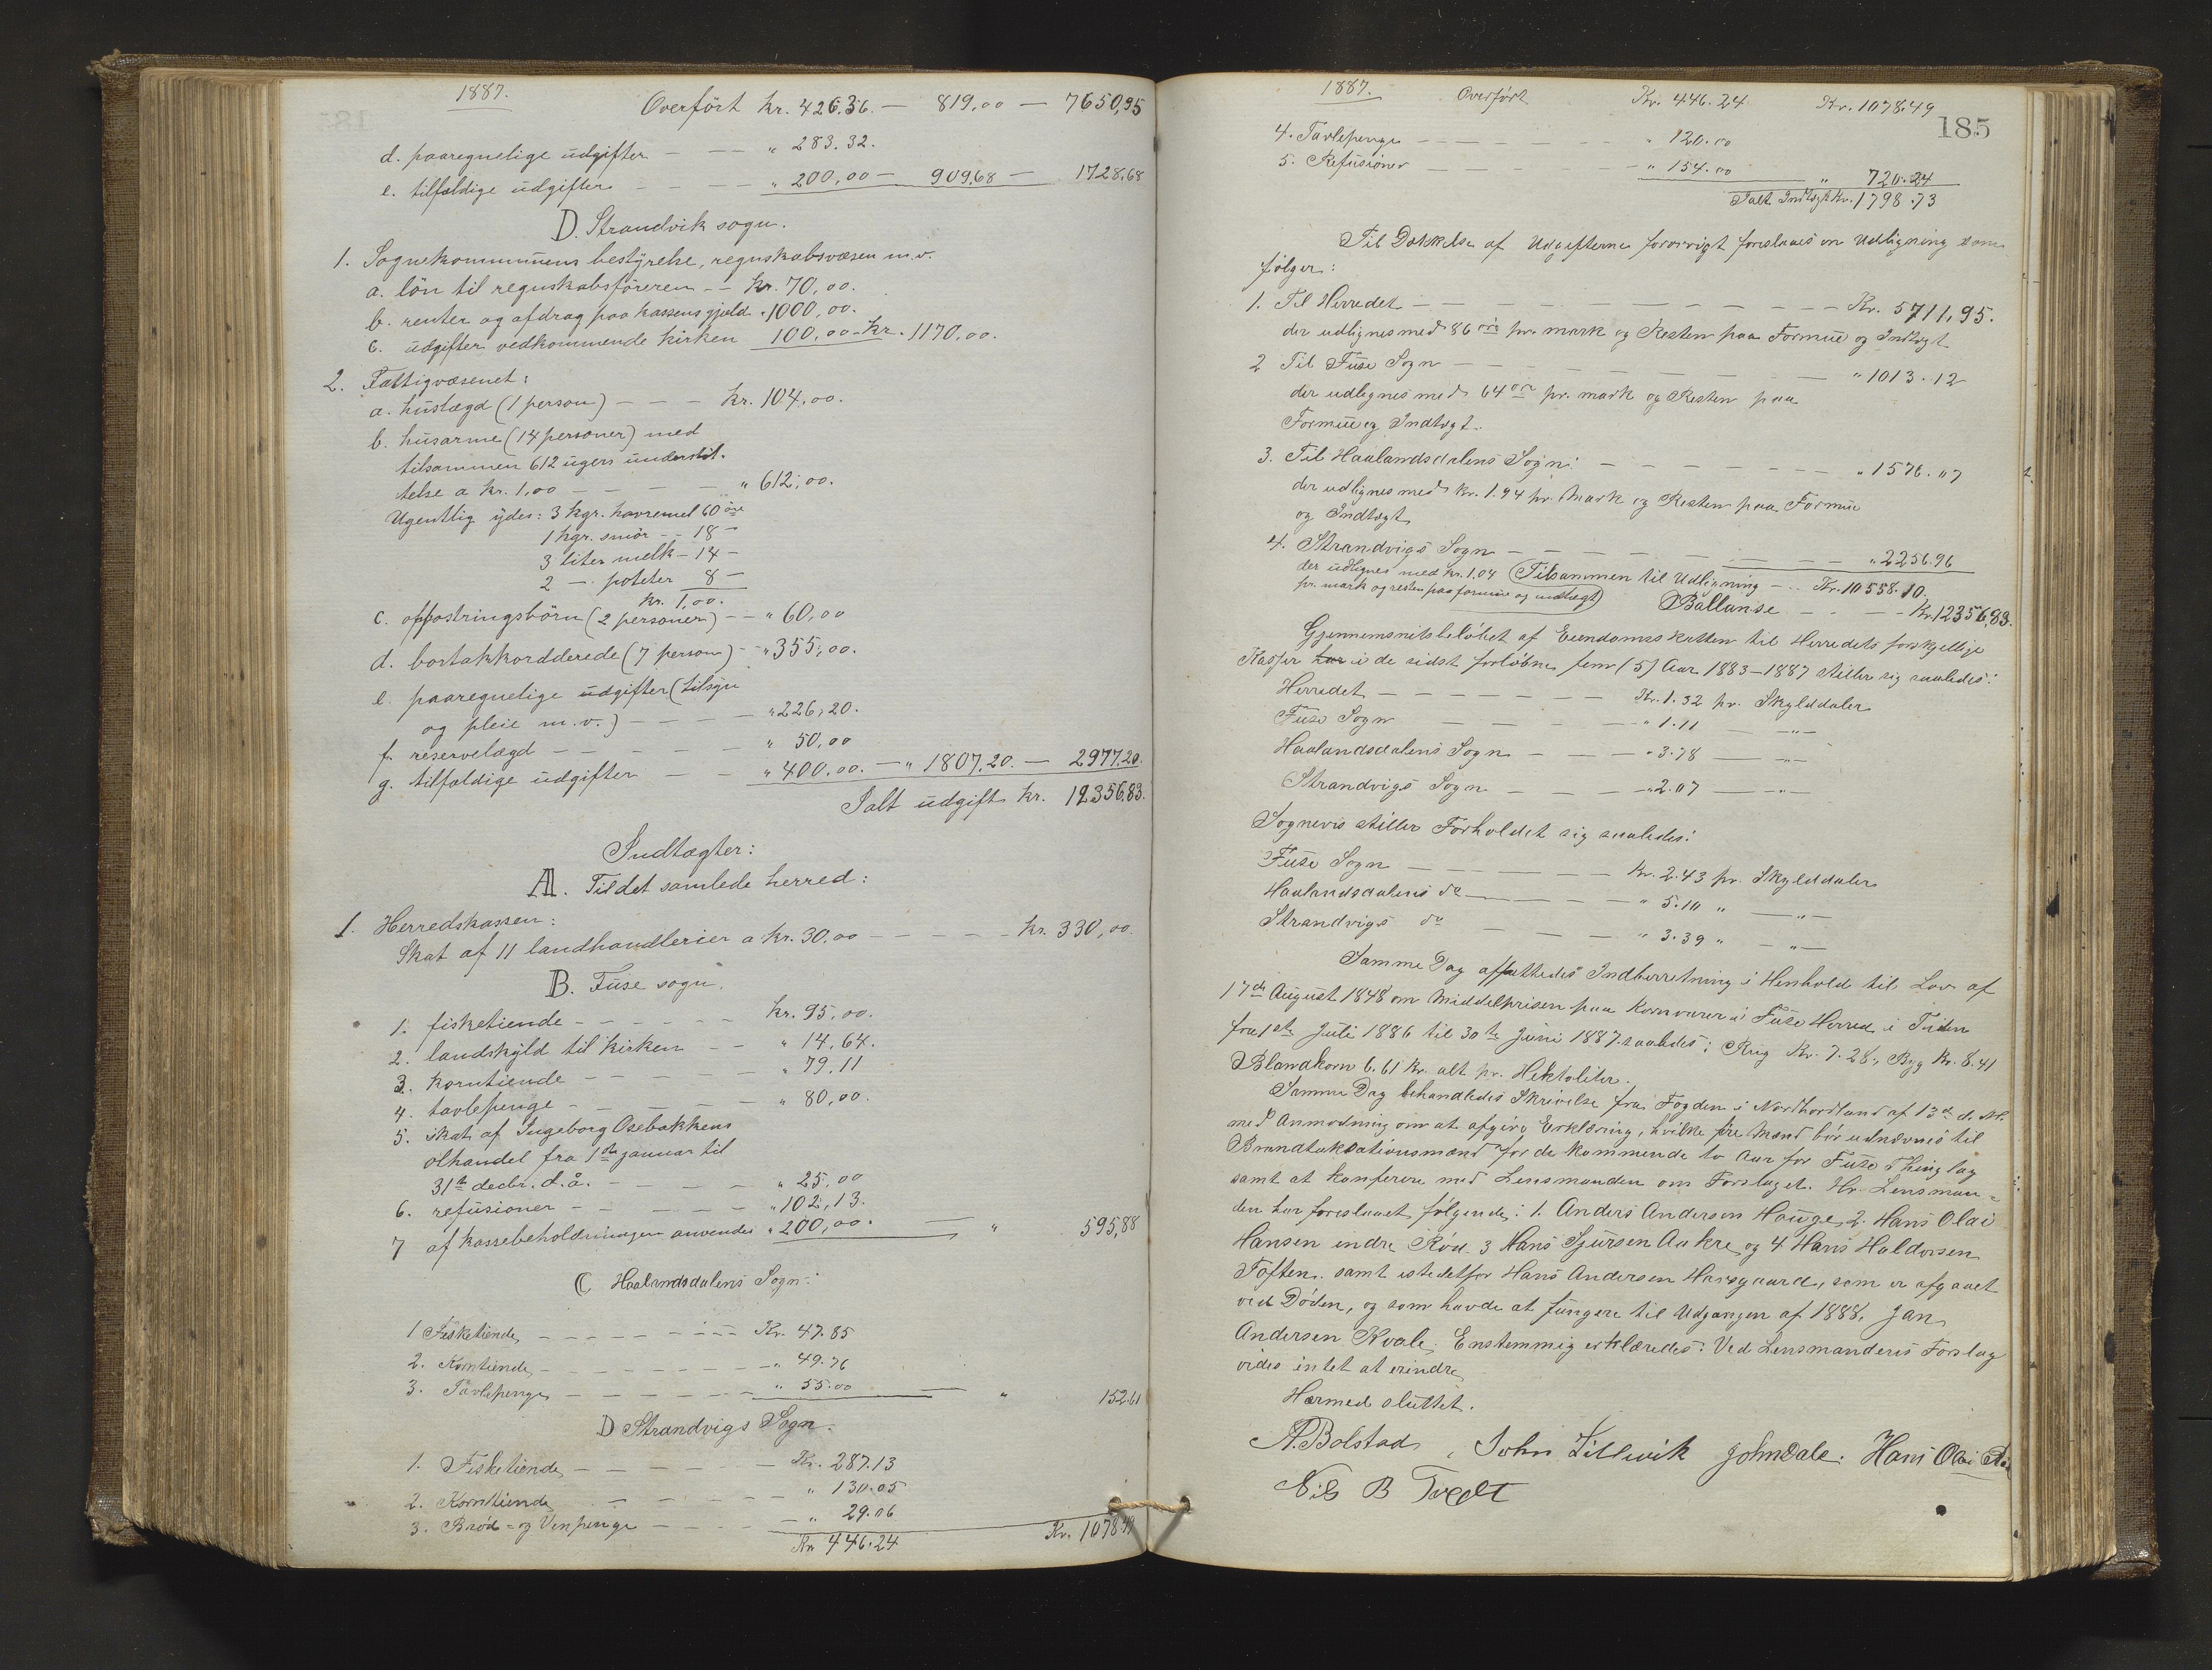 1887.
Overført kr. 426.36. — 819,00 — 7650,95
d. paaregnelige udgifter — — — „ 283.32.
e. tilfældige udgifter — — — „ 200,00 — 909,68 — 1728,68
D. Strandvik sogn.
1. Sognekommunens bestyrelse, regnskabsvæsen m.v.
a. løn til regnskabsføreren — — kr. 70,00.
b. renter og afdrag paa kassens gjæld „ 1000,00.
c. udgifter vedkommende kirken 100,00 — kr. 1170,00.
2. Fattigvæsenet:
a. huslægd (1 person) — — — kr. 104,00.
b. husarme (14 personer) med
tilsammen 612 ugers understöt-
telse a kr. 1,00 — — — — „ 612,00.
Ugentlig ydes: 3 kgr. havremel 60 øre
1 kgr. smør — — 18 —
3 liter melk — 14 —
2 — poteter 8 —
kr. 1,00.
c. opfostringsbørn (2 personer) — — „ 60,00
d. bortakkorderede (7 person) — „ 355,00.
e. paaregnelige udgifter (tilsyn
og pleie m.v.) — — — — „ 226,20.
f. reservelægd — — — — — „ 50,00
g. tilfældige udgifter — — „ 400,00. — „ 1807,20. — 2977,20.
Ialt udgift kr. 12356,83.
Indtægter:
A. Til det samlede herred:
1. Herredskassen:
Skat af 11 landhandlerier a kr. 30.00 — — — — — kr. 330,00.
B. Fuse sogn.
1. fisketiende — — — — — kr. 95,00.
2. landskyld til kirken — — „ 14,64.
3. korntiende — — — — — „ 79,11
4. tavlepenge — — — — — „ 80,00.
5. skat af Ingeborg Osebakkens
ølhandel fra 1ste januar til
31te decbr. d.å. — — — — „ 25,00
6. refusioner — — — — — „ 102,13.
7 af kassebeholdningen anvendes „ 200,00. — „ 595,88
C Haalandsdalens Sogn:
1 Fisketiende — — — — — — Kr. 47.85
2. Korntiende — — — — — — „ 49.76
3. Tavlepenge — — — — — — „ 55.00 — „ 152.61
D Strandvigs Sogn.
1. Fisketiende — — — — — Kr. 287.13
2. Korntiende — — — — — „ 130.05
3. Brød- og Vinpenge — — — — „ 29.06
Kr. 446.24 Kr. 1078.49
1887. Overført Kr. 446.24 Kr. 1078.49
185
4. Tavlepenge — — — — — — — „ 120.00
5. Refusioner — — — — — — — „ 154.00 „ 720.24
Ialt Indtægt Kr. 1798.73
Til Dækkelse af Udgifterne forøvrigt foreslaaes en Udligning som
følger:
1. Til Herredet — — — — — — — — — — Kr. 5711,95.
der udlignes med 86 øre pr. mark og Resten paa Formue og Indtægt
2 Til Fuse Sogn — — — — — — — — — „ 1013.12
der udlignes med 64 øre pr. mark og Resten paa
Formue og Indtægt.
3. Til Haalandsdalens Sogn: — — — — — — — „ 1576.07
der udlignes med kr. 1.94 pr. Mark og Resten paa Formue
og Indtægt
4. Strandvigs Sogn — — — — — — — — — „ 2256.96
der udlignes med kr. 1,04 (Tilsammen til Udligning — — Kr. 10558.10.
pr. mark og resten paa formue og indtægt) Ballanse — — — Kr. 12356,83.
Gjennemsnitsbeløbet af Eiendomsskatten til Herredets forskjellige
Kasser har i de sidst forløbne fem (5) Aar 1883—1887 stiller sig saaledes:
Herredet — — — — — — — Kr. 1.32 pr. Skylddaler
Fuse Sogn — — — — — „ 1.11 — „ —
Haalandsdalens Sogn — — — „ 3.78 — „ —
Strandvigs Sogn — — — — „ 2.07 — „ —
Sognevis stiller Forholdet sig saaledes:
Fuse Sogn — — — — — — — Kr. 2.43 pr. Skylddaler
Haalandsdalens do — — — — — „ 5.10 „ — „ —
Strandvigs do — — — — — „ 3.39 „ — „ —
Samme Dag affattedes Indberretning i Henhold til Lov af
17de August 1848 om Middelprisen paa Kornvarer i Fuse Herred i Tiden
fra 1ste Juli 1886 til 30te Juni 1887 saaledes: Rug Kr. 7.28., Byg Kr. 8.41
Blandkorn 6.61 Kr. alt pr. Hektoliter.
Samme Dag behandledes Skrivelse fra Fogden i Nordhordland af 13de d. M.
med Anmodning om at afgive Erklæring, hvilke fire Mænd bør udnævnes til
Brandtaksationsmænd for de kommende to Aar for Fuse Thinglag
samt at konferere med Lensmanden om Forslaget. Hr. Lensman-
den har foreslaaet følgende: 1. Anders Andersen Hauge, 2. Hans Olai
Hansen indre Rød 3 Hans Sjursen Aakre og 4 Hans Haldorsen
Toften. samt istedetfor Hans Andersen Havsgaard, som er afgaaet
ved Døden, og som havde at fungere til Udgangen af 1888. Jan
Andersen Kvale. Enstemmig erklæredes: Ved Lensmandens Forslag
vides intet at erindre
Hermed sluttet.
A. Bolstad, John Lillevik John Dale. Hans Olai
Nils B Tvedt